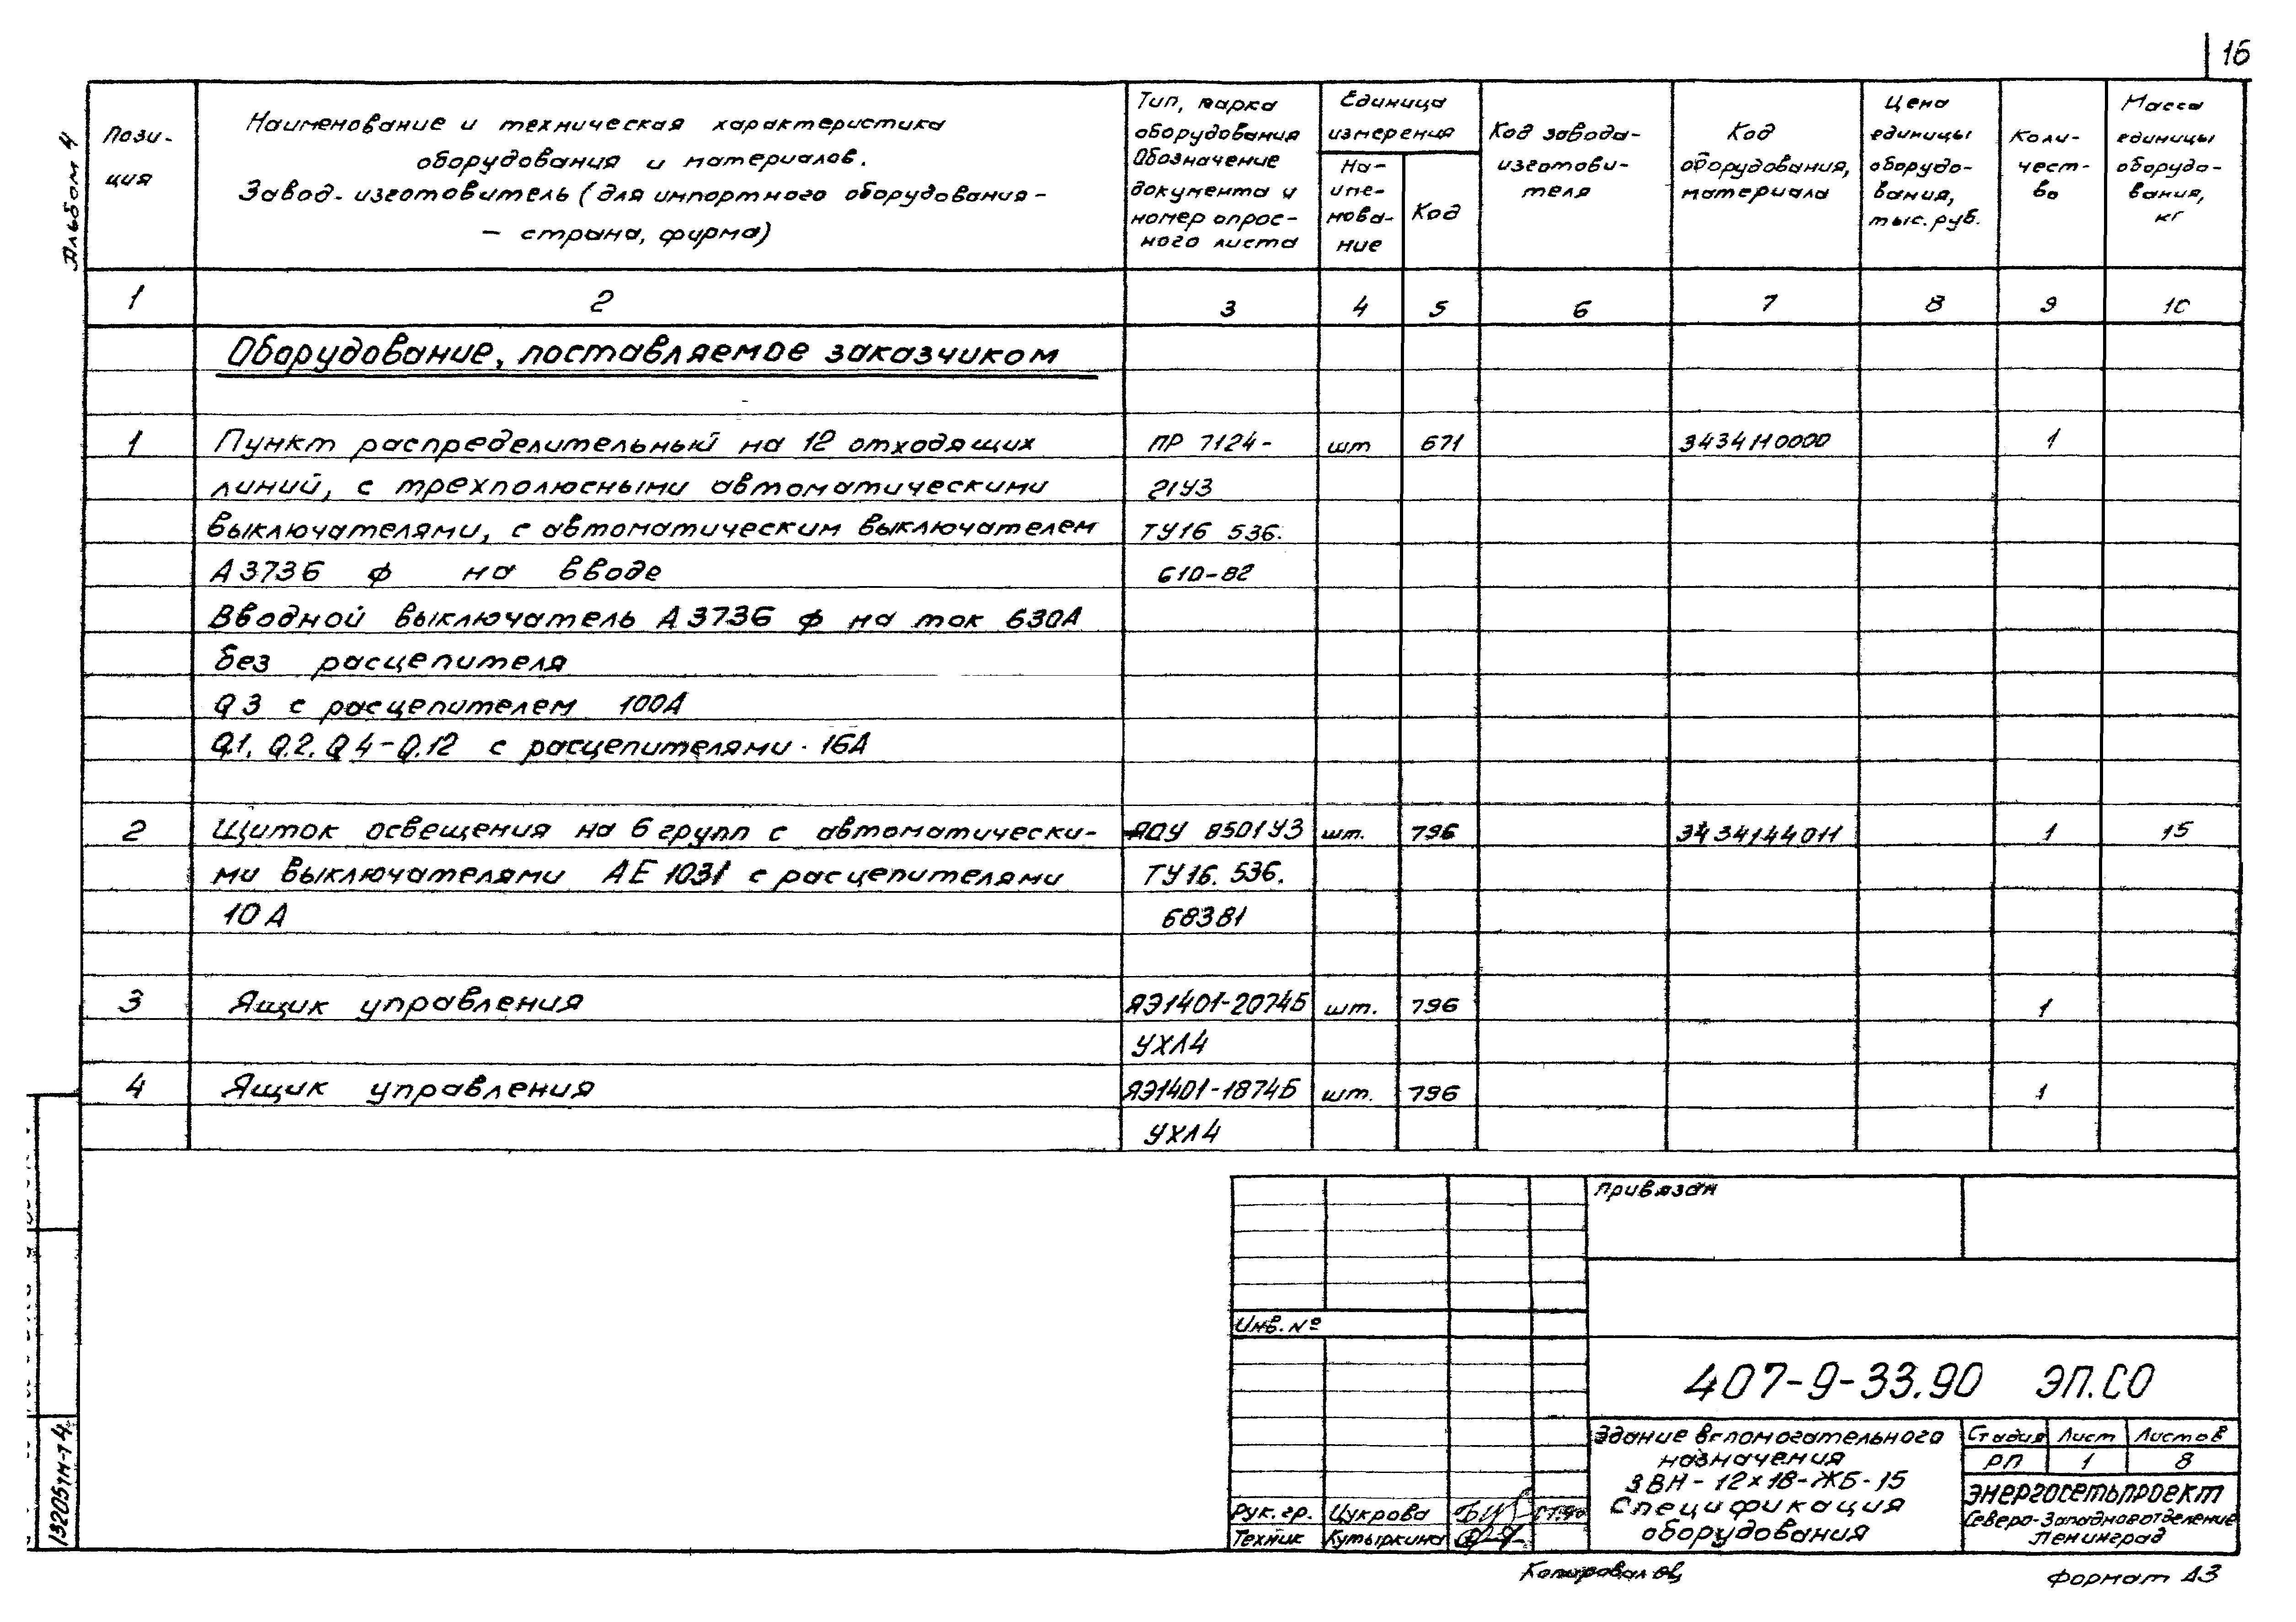 16
Альбом 4
Пози-
ция
Наименование и техническая характеристика
оборудования и материалов.
Завод-изготовитель (для импортного оборудования -
- страна, фирма)
Тип, марка
оборудования
Обозначение
документа и
номер опрос-
ного листа
Единица
измерения
На-
име-
нова-
ние
Код
Код завода-
изготови-
теля
Код
оборудования,
материала
Цена
единицы
оборудо-
вания,
тыс. руб.
Коли-
чест-
во
Масса
единицы
оборудо-
вания,
кг
1 2 3 4 5 6 7 8 9 10
Оборудование, поставляемое заказчиком
1 Пункт распределительный на 12 отходящих ПР 7124- шт 671 3434110000 1
линий, с трехполюсными автоматическими 21У3
выключателями, с автоматическим выключателем ТУ16 536.
А3736 ф на вводе 610-82
Вводной выключатель А3736 ф на ток 630А
без расцепителя
Q3 с расцепителем 100А
Q.1, Q.2, Q4-Q.12 с расцепителями 16А
2 Щиток освещения на 6 групп с автоматически- ЯОУ 8501У3 шт. 796 3434144011 1 15
ми выключателями АЕ 1031 с расцепителями ТУ16. 536.
10А 68381
3 Ящик управления ЯЭ1401-2074Б шт. 796 1
УХЛ4
4 Ящик управления ЯЭ1401-1874Б шт. 796 1
УХЛ4
Привязан
Инв. №
407-9-33.90 ЭП.СО
Здание вспомогательного
назначения
ЗВН-12х18-ЖБ-15
Спецификация
оборудования
Стадия Лист Листов
РП 1 8
Энергосетьпроект
Северо-Западное отделение
Ленинград
Рук. гр. Цукрова
Техник Кутыркина
13205тм-т4
Копировал
Формат А3